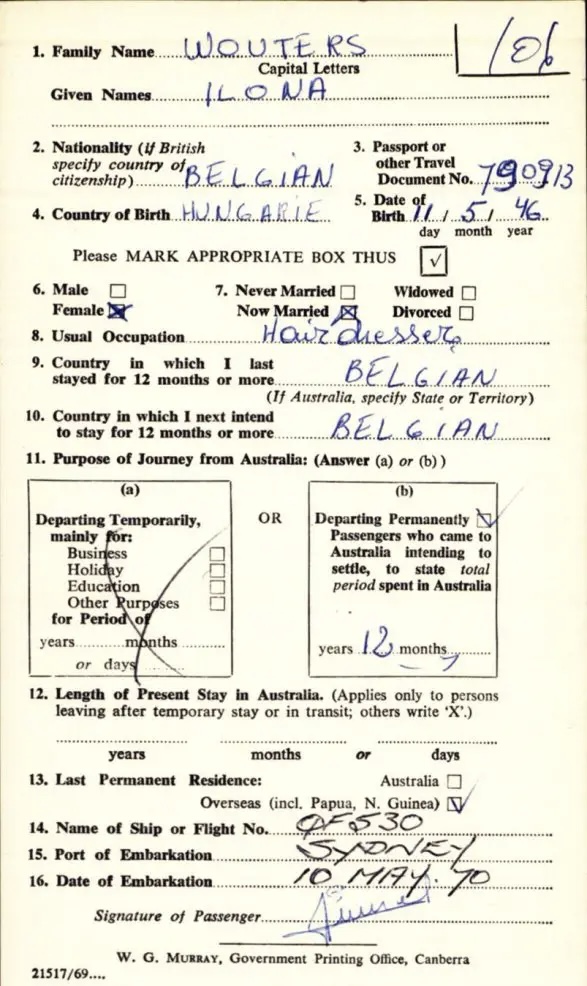 106
1. Family Name WOUTERS
Capital Letters
Given Names ILONA
2. Nationality (if British specify country of citizenship) BELGIAN
3. Passport or other Travel Document No. 790913
4. Country of Birth HUNGARIE
5. Date of Birth 11 / 5 / 46
day month year
Please MARK APPROPRIATE BOX THUS ✓
6. Male
Female
7. Never Married Widowed
Now Married Divorced
8. Usual Occupation Hairdresser
9. Country in which I last
stayed for 12 months or more BELGIAN
(If Australia, specify State or Territory)
10. Country in which I next intend
to stay for 12 months or more BELGIAN
11. Purpose of Journey from Australia: (Answer (a) or (b))
(a)
Departing Temporarily,
mainly for:
Business
Holiday
Education
Other Purposes
for Period of
years months
or days
OR
(b)
Departing Permanently
Passengers who came to
Australia intending to
settle, to state total
period spent in Australia
years 12 months
12. Length of Present Stay in Australia. (Applies only to persons
leaving after temporary stay or in transit; others write 'X'.)
years months or days
13. Last Permanent Residence: Australia
Overseas (incl. Papua, N. Guinea)
14. Name of Ship or Flight No. QF530
15. Port of Embarkation SYDNEY
16. Date of Embarkation 10 MAY. 70
Signature of Passenger
W. G. MURRAY, Government Printing Office, Canberra
21517/69....